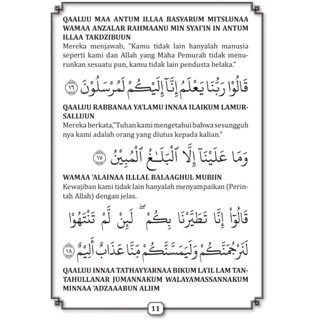 QAALUU MAA ANTUM ILLAA BASYARUM MITSLUNAA
WAMAA ANZALAR RAHMAANU MIN SYAI'IN IN ANTUM
ILLAA TAKDZIBUUN
Mereka menjawab, "Kamu tidak lain hanyalah manusia
seperti kami dan Allah yang Maha Pemurah tidak menu-
runkan sesuatu pun, kamu tidak lain hanyalah pendusta belaka."
قَالُوا۟ رَبُّنَا يَعْلَمُ إِنَّآ إِلَيْكُمْ لَمُرْسَلُونَ ﴿١٦﴾
QAALUU RABBANAA YA'LAMU INNAA ILAIKUM LAMUR-
SALLUUN
Mereka berkata,"Tuhan kami mengetahui bahwa sesungguh
nya kami adalah orang yang diutus kepada kalian."
وَمَا عَلَيْنَآ إِلَّا ٱلْبَلَـٰغُ ٱلْمُبِينُ ﴿١٧﴾
WAMAA 'ALAINAA ILLLAL BALAAGHUL MUBIIN
Kewajiban kami tidak lain hanyalah menyampaikan (Perin-
tah Allah) dengan jelas.
قَالُوٓا۟ إِنَّا تَطَيَّرْنَا بِكُمْ ۖ لَئِن لَّمْ تَنتَهُوا۟
لَنَرْجُمَنَّكُمْ وَلَيَمَسَّنَّكُم مِّنَّا عَذَابٌ أَلِيمٌ ﴿١٨﴾
QAALUU INNAA TATHAYYARNAA BIKUM LA'IL LAM TAN-
TAHULLANAR JUMANNAKUM WALAYAMASSANNAKUM
MINNAA 'ADZAABUN ALIIM
11